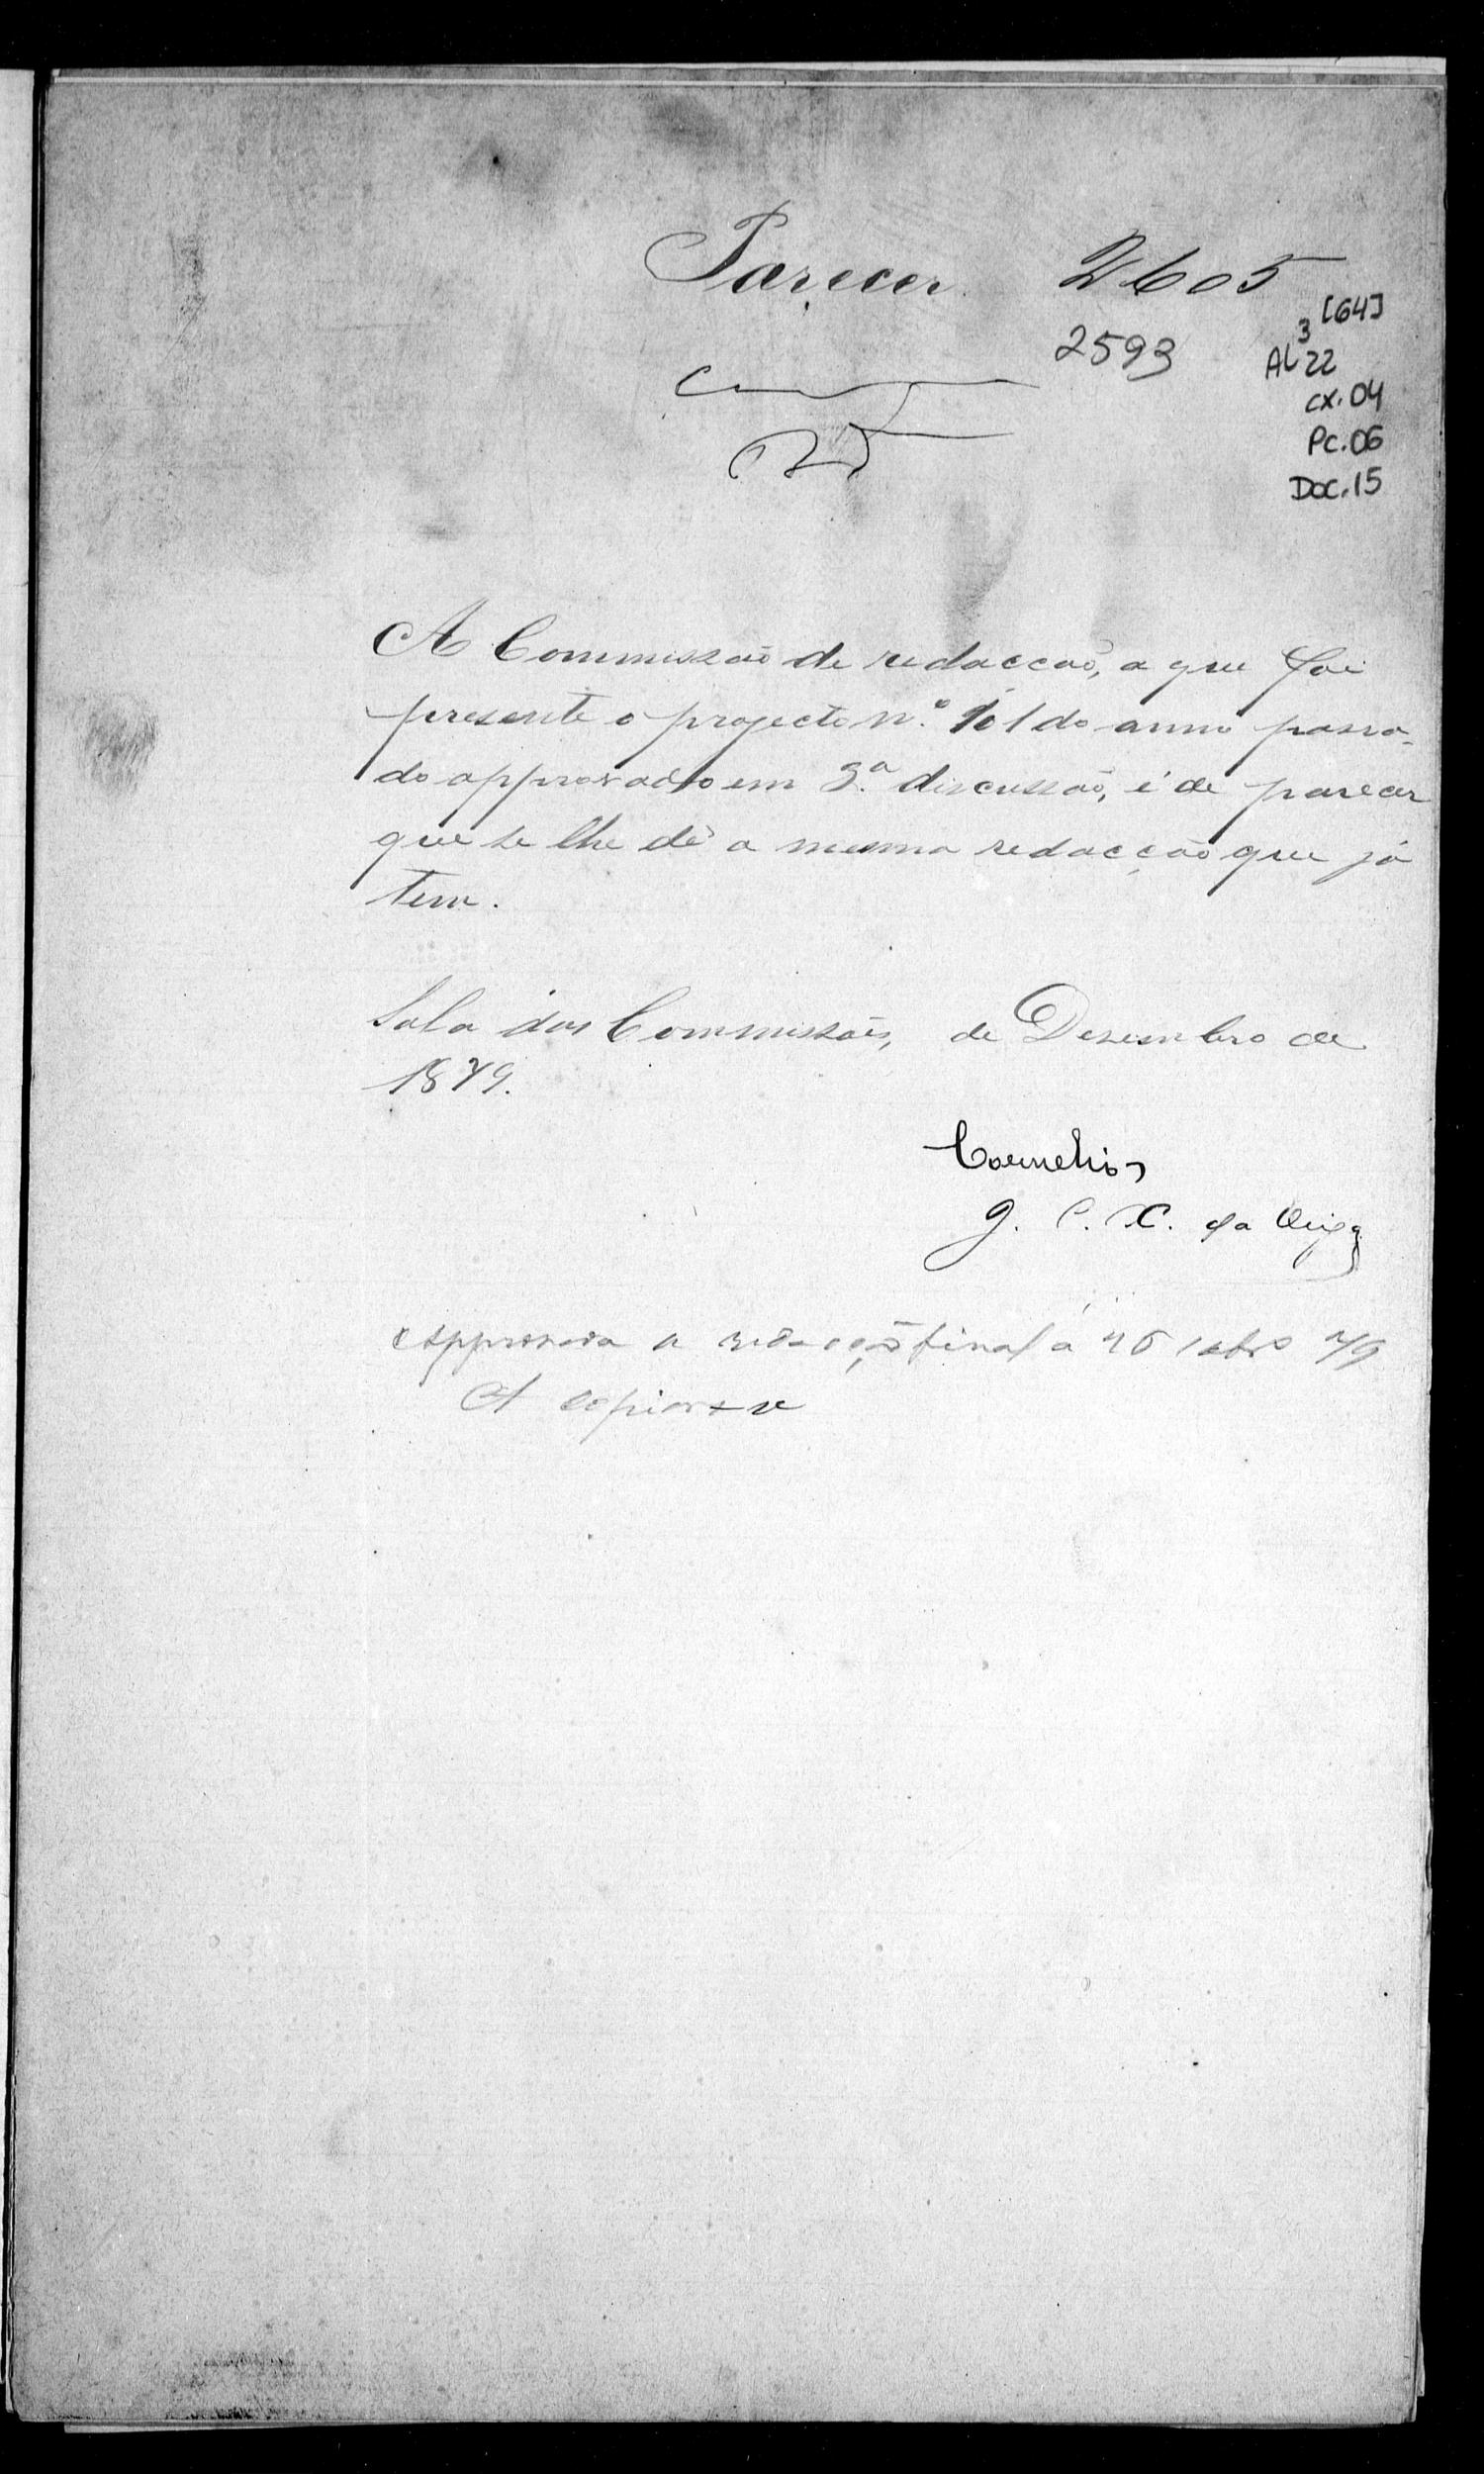 Parecer 2605
[64]
2593
3
AL 22
cx. 04
Pc. 06
Doc. 15
A Commissão de redacção, a que foi
presente o projecto n.º 101 do anno passa-
do approvado em 3.ª discussão, é de parecer
que se lhe dê a mesma redacção que já
tem.
Sala das Commissões, de Dezembro de
1879.
Cornelio
J. C. X. da Veiga
Approvada a redacção final á
A copiar-se